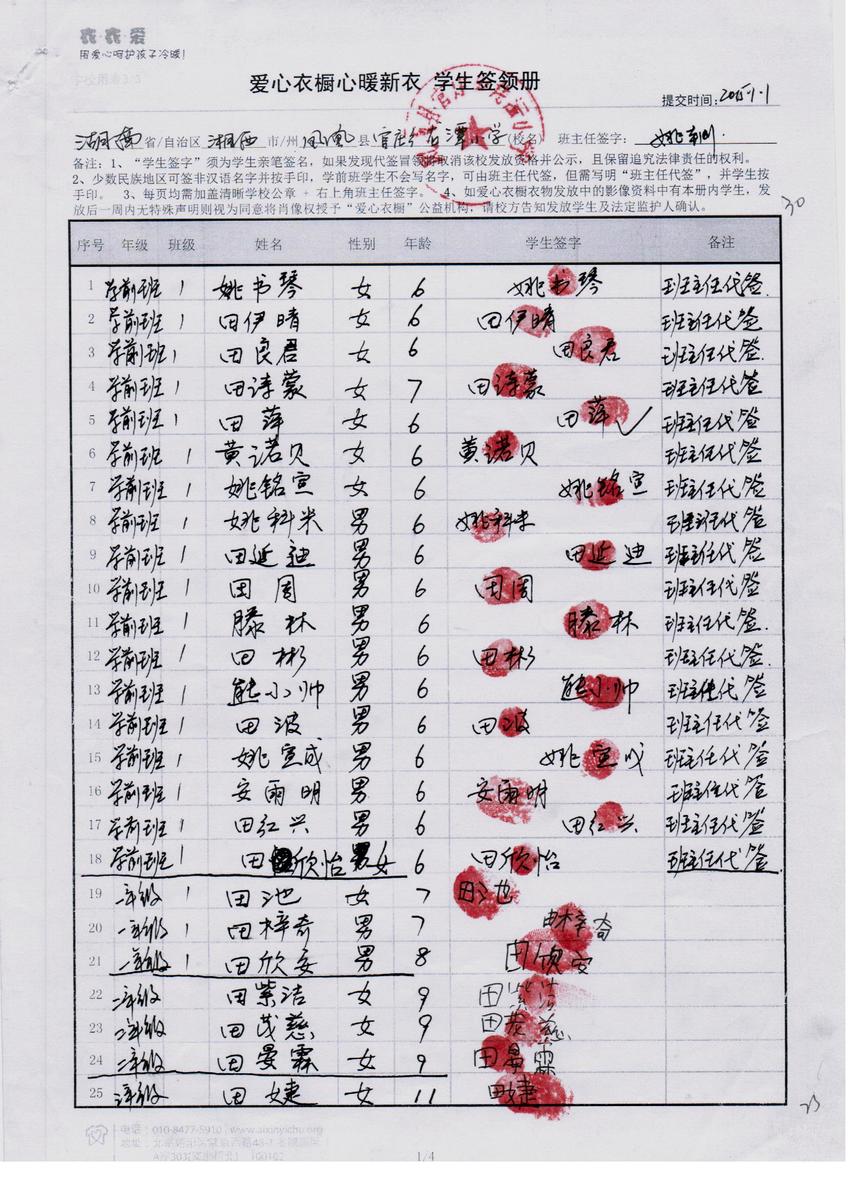 衣·衣·爱
用爱心呵护孩子冷暖!
爱心衣橱心暖新衣 学生签领册
提交时间:2015.1.1
湖南 省/自治区 湘西 市/州 凤凰 县 小学 (校名) 班主任签字:
备注:1、“学生签字”须为学生亲笔签名,如果发现代签冒领将取消该校发放资格并公示,且保留追究法律责任的权利。
2、少数民族地区可签非汉语名字并按手印,学前班学生不会写名字,可由班主任代签,但需写明“班主任代签”,并学生按
手印。 3、每页均需加盖清晰学校公章 + 右上角班主任签字。 4、如爱心衣橱衣物发放中的影像资料中有本册内学生,发
放后一周内无特殊声明则视为同意将肖像权授予“爱心衣橱”公益机构,请校方告知发放学生及法定监护人确认。
30
序号 年级 班级 姓名 性别 年龄 学生签字 备注
1 学前班 1 姚书琴 女 6 姚书琴 班主任代签.
2 学前班 1 田伊晴 女 6 田伊晴 班主任代签
3 学前班 1 田良君 女 6 田良君 班主任代签.
4 学前班 1 田诗蒙 女 7 田诗蒙 班主任代签
5 学前班 1 田萍 女 6 田萍 班主任代签
6 学前班 1 黄诺贝 女 6 黄诺贝 班主任代签
7 学前班 1 姚铭宣 女 6 姚铭宣 班主任代签
8 学前班 1 姚科米 男 6 姚科米 班主任代签
9 学前班 1 田延迪 男 6 田延迪 班主任代签
10 学前班 1 田周 男 6 田周 班主任代签
11 学前班 1 滕林 男 6 滕林 班主任代签.
12 学前班 1 田彬 男 6 田彬 班主任代签.
13 学前班 1 熊小帅 男 6 熊小帅 班主任代签
14 学前班 1 田波 男 6 田波 班主任代签
15 学前班 1 姚宣成 男 6 姚宣成 班主任代签
16 学前班 1 安雨明 男 6 安雨明 班主任代签
17 学前班 1 田红兴 男 6 田红兴 班主任代签
18 学前班 1 田欣怡 女 6 田欣怡 班主任代签
19 一年级 1 田池 女 7 田池
20 一年级 1 田梓奇 男 7 田梓奇
21 一年级 1 田欣安 男 8 田欣安
22 二年级 田紫洁 女 9 田紫洁
23 二年级 田茂慈 女 9 田茂慈
24 二年级 田晏霖 女 9 田晏霖
25 三年级 田婕 女 11 田婕
电话:010-8477-5910 www.aixinyichu.org
1/4